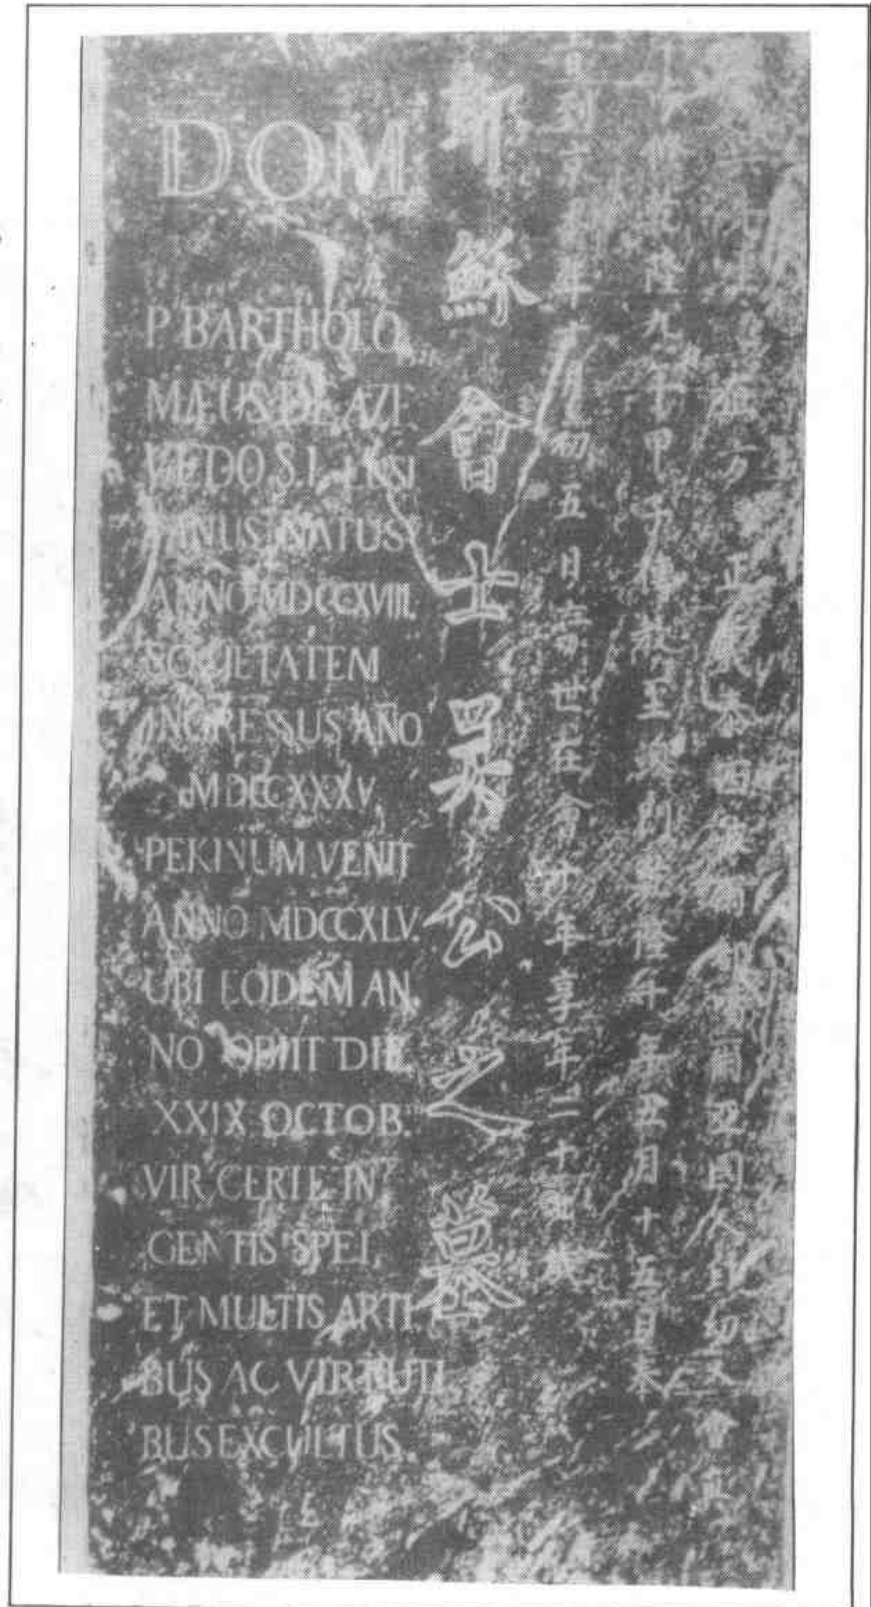 DOM
P BARTHOLO
MÆUS DE AZE
VEDO S.I. LUSI
TANUS NATUS
ANNO MDCCXVIII.
SOCIETATEM
INGRESSUS AÑO
MDCCXXXV.
PEKINUM VENIT
ANNO MDCCXLV.
UBI EODEM AN.
NO OBIIT DIE
XXIX OCTOB.
VIR CERTE IN
GENTIS SPEI,
ET MULTIS ARTI
BUS AC VIRTUTI
BUS EXCULTUS.
耶穌會士吳公之墓
方泰西爾亞國人自幼入會真
隆九年甲子傳教至隆十年丑月十五日來
到京年十月初五日去世在會十年享年二十歲